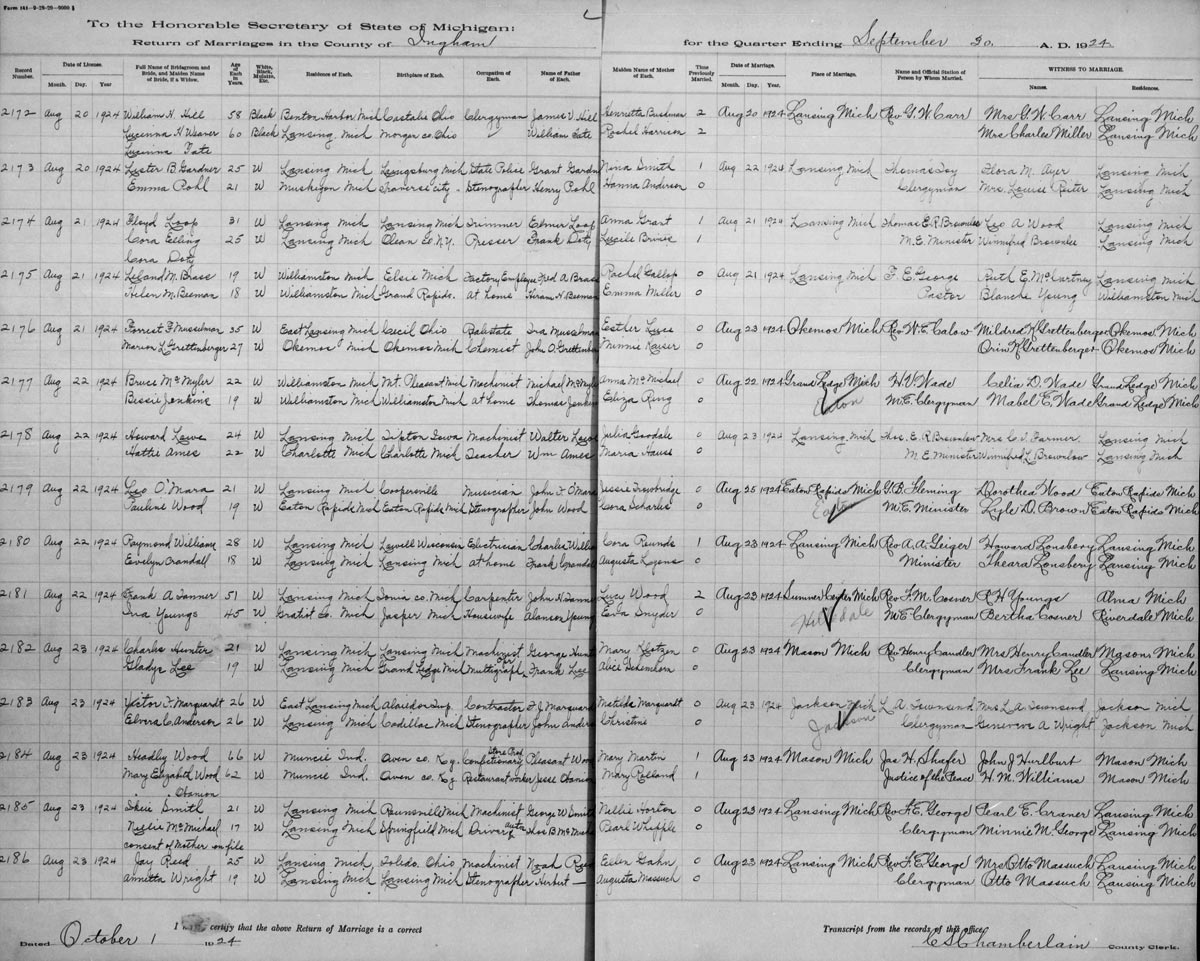 Form 141-9-29-20-9000
To the Honorable Secretary of State of Michigan:
Return of Marriages in the County of Ingham for the Quarter Ending September 30 A. D. 1924
Record Number. Date of License. Month. Day. Year Full Name of Bridegroom and Bride, and Maiden Name of Bride, if a Widow. Age of Each in Years White, Black, Mulatto, Etc. Residence of Each. Birthplace of Each. Occupation of Each. Name of Father of Each. Maiden Name of Mother of Each. Time Previously Married. Date of Marriage. Month. Day. Year Place of Marriage. Name and Official Station of Person by Whom Married. WITNESS TO MARRIAGE. Names. Residences.
2172 Aug 20 1924 William H. Hill 58 Black Benton Harbor Mich Castalia Ohio Clergyman James V Hill Henrietta Bushman 2 Aug 20 1924 Lansing Mich Rev G.W. Carr Mrs G.W. Carr Lansing Mich
Lucinna H Weaver 60 Black Lansing Mich Morgan co. Ohio William Tate Rachel Harrison 2 Mrs Charles Miller Lansing Mich
Lucinna Tate
2173 Aug 20 1924 Lester B. Gardner 25 W Lansing Mich Laingsburg Mich State Police Grant Gardn Nina Smith 1 Aug 22 1924 Lansing Mich Thomas Toy Flora M. Ayer Lansing Mich
Emma Pohl 21 W Muskegon Mich Traverse city Stenographer Henry Pohl Hanna Anderson 0 Clergyman Mrs. Louise Reiter Lansing Mich
2174 Aug 21 1924 Floyd Loop 31 W Lansing Mich Lansing Mich Trimmer Elmer Loop Anna Grant 1 Aug 21 1924 Lansing Mich Thomas E.R. Brownlee Leo A Wood Lansing Mich
Cora Elling 25 W Lansing Mich Olean Co N.Y. Presser Frank Doty Lucile 1 M.E. Minister Winnifred Brownlee Lansing Mich
Cora Doty
2175 Aug 21 1924 Leland M. Brass 19 W Williamston Mich Elsie Mich Factory Employee Fred A Brass Rachel Gallop 0 Aug 21 1924 Lansing Mich F. E. George Ruth E. McCurtney Lansing Mich
Helen M. Beeman 18 W Williamston Mich Grand Rapids. at home Hiram H. Beeman Emma Miller 0 Pastor Blanche Young Williamston Mich
2176 Aug 21 1924 Forrest F Musselman 35 W East Lansing Mich Cecil Ohio Ralestate Ira Musselman Esther Luse 0 Aug 23 1924 Okemos Mich Rev W.E. Calow Mildred K Grettenberger Okemos Mich
Marion L. Grettenberger 27 W Okemos Mich Okemos Mich Chemist John O. Grettenber Minnie Kaiser 0 Orin K. Grettenberger Okemos Mich
2177 Aug 22 1924 Bruce McMyler 22 W Williamston Mich Mt. Pleasant Mich Machinist Michael McMyl Anna McMichael 0 Aug 22 1924 Grand Ledge Mich H.V. Wade Celia D. Wade Grand Ledge Mich
Bessie Jenkins 19 W Williamston Mich Williamston Mich at home Thomas Jenkin Eliza King 0 Eaton M.E. Clergyman Mabel E. Wade Grand Ledge Mich
2178 Aug 22 1924 Howard Lowe 24 W Lansing Mich Tipton Iowa Machinist Walter Lowe Julia Goodale 0 Aug 23 1924 Lansing Mich Thos. E.R. Brownlow Mrs C. F. Farmer Lansing Mich
Hattie Ames 22 W Charlotte Mich Charlotte Mich Teacher Wm Ames Maria Hause 0 M.E. Minister Winnifred L. Brownlow Lansing Mich
2179 Aug 22 1924 Leo O'Mara 21 W Lansing Mich Coopersville Musician John F O'Mara Jessie Trowbridge 0 Aug 25 1924 Eaton Rapids Mich G.B. Fleming Dorothea Wood Eaton Rapids Mich
Pauline Wood 19 W Eaton Rapids Mich Eaton Rapids Mich Stenographer John Wood Cora Scharles 0 Eaton M.E. Minister Lyle D. Brown Eaton Rapids Mich
2180 Aug 22 1924 Raymond Williams 28 W Lansing Mich Lowell Wisconsin Electrician Charles Willia Cora Rounds 1 Aug 23 1924 Lansing Mich Rev A.A. Geiger Howard Lonsbery Lansing Mich
Evelyn Crandall 18 W Lansing Mich Lansing Mich at home Frank Crandal Augusta Lyons 0 Minister Theara Lonsbery Lansing Mich
2181 Aug 22 1924 Frank A Tanner 51 W Lansing Mich Ionia co. Mich Carpenter John H Tanne Lucy Wood 2 Aug 23 1924 Sumner Center Mich Rev F. M. Cosner R H Youngs Alma Mich
Iva Youngs 45 W Gratiot Co. Mich Jasper Mich Housewife Alanson Young Eva Snyder 0 Hillsdale M.E. Clergyman Bertha Cosner Riverdale Mich
2182 Aug 23 1924 Charles Hunter 21 W Lansing Mich Lansing Mich Machinist George Hunt Mary Klotzen 0 Aug 23 1924 Mason Mich Rev Henry Candler Mrs Henry Candler Mason Mich
Gladys Lee 19 W Lansing Mich Grand Ledge Mich Multigraph or Frank Lee Alice 0 Clergyman Mrs Frank Lee Lansing Mich
2183 Aug 23 1924 Victor F. Marquardt 26 W East Lansing Mich Alaiedon Twp. Contractor F J Marquar Matilda Marquardt 0 Aug 23 1924 Jackson Mich L. A. Townsend Mrs L.A. Townsend Jackson Mich
Elvera C. Anderson 26 W Lansing Mich Cadillac Mich Stenographer John Anders Christine 0 Jackson Clergyman Genevieve A. Wright Jackson Mich
2184 Aug 23 1924 Headly Wood 66 W Muncie Ind. Owen co. Ky. Confectionary Store Prop Pleasant Wood Mary Martin 1 Aug 23 1924 Mason Mich Jas H. Shafer John J Hurlburt Mason Mich
Mary Elizabeth Wood 62 W Muncie Ind. Owen co. Ky. Restaurant Jesse Obanion Mary Rolland 1 Justice of the Peace H. M. Williams Mason Mich
" " Obanion
2185 Aug 23 1924 Smith 21 W Lansing Mich Mich Machinist George W Smith Nellie Horton 0 Aug 23 1924 Lansing Mich Rev F. E. George Pearl E. Craner Lansing Mich
Nellie McMichael 17 W Lansing Mich Springfield Mich Driver auto Thos B McMich Pearl Whipple 0 Clergyman Minnie M. George Lansing Mich
consent of Mother on file
2186 Aug 23 1924 Jay Reed 25 W Lansing Mich Toledo. Ohio Machinist Noah Reed Ellen Gahn 0 Aug 23 1924 Lansing Mich Rev F. E. George Mrs Otto Massuch Lansing Mich
Annetta Wright 19 W Lansing Mich Lansing Mich Stenographer Herbert — Augusta Massuch 0 Clergyman Otto Massuch Lansing Mich
I certify that the above Return of Marriage is a correct Transcript from the records of this office
Dated October 1 1924 C S Chamberlain County Clerk.